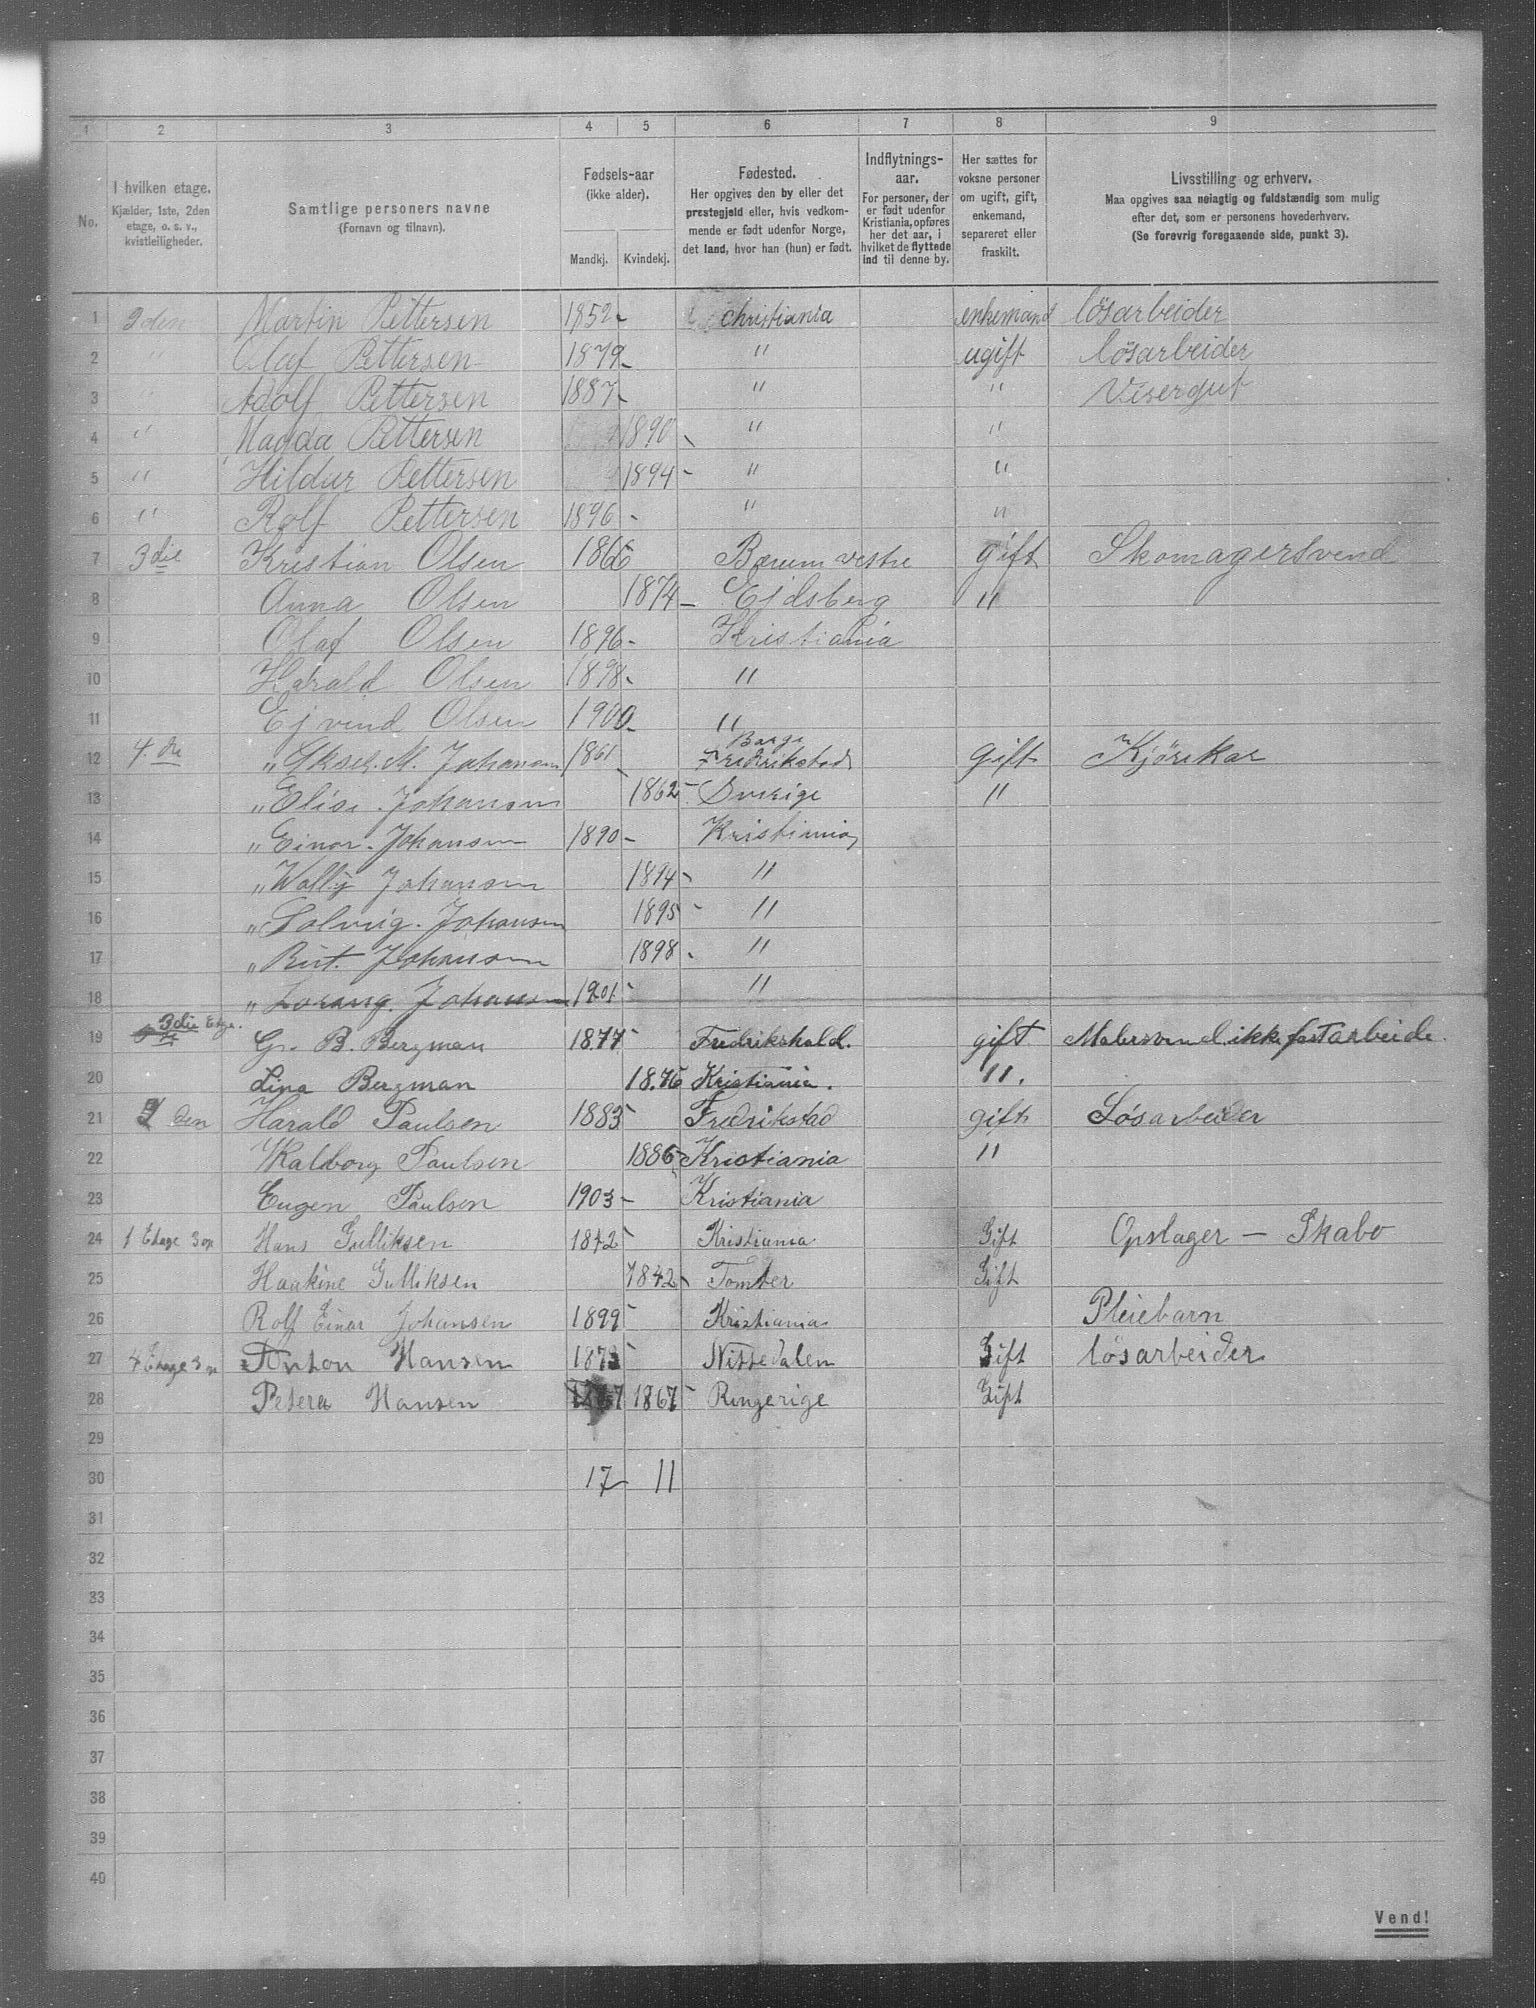 1 2 3 4 5 6 7 8 9
No.
I hvilken etage.
Kjælder, 1ste, 2den
etage, o. s. v.,
kvistleiligheder.
Samtlige personers navne
(Fornavn og tilnavn).
Fødsels-aar
(ikke alder).
Mandkj. Kvindekj.
Fødested.
Her opgives den by eller det
præstegjeld eller, hvis vedkom-
mende er født udenfor Norge,
det land, hvor han (hun) er født.
Indflytnings-
aar.
For personer, der
er født udenfor
Kristiania, opføres
her det aar, i
hvilket de flyttede
ind til denne by.
Her sættes for
voksne personer
om ugift, gift,
enkemand,
separeret eller
fraskilt.
Livsstilling og erhverv.
Maa opgives saa nøiagtig og fuldstændig som mulig
efter det, som er personens hovederhverv.
(Se forøvrig foregaaende side, punkt 3).
1 2den Martin Pettersen 1852 Christiania enkemand lösarbeider
2 " Olaf Pettersen 1879 " ugift lösarbeider
3 " Adolf Pettersen 1887 " " Visergut
4 " Magda Pettersen 1890 " "
5 " Hildur Pettersen 1894 " "
6 " Rolf Pettersen 1896 " "
7 3die Kristian Olsen 1866 Bærum vestre gift Skomagersvend
8 Anna Olsen 1874 Ejdsberg "
9 Olaf Olsen 1896 Kristiania
10 Harald Olsen 1898 "
11 Ejvend Olsen 1900 "
12 4.de " Aksel. M. Johansen 1861 Borge Fredrikstad gift Kjørekar
13 " Elise. Johansen 1862 Sverige "
14 " Einar. Johansen 1890 Kristiania
15 " Wally Johansen 1894 "
16 " Solveig. Johansen 1895 "
17 " Johansen 1898 "
18 " Lorang. Johansen 1901 "
19 3die Etge. G. B. Bergman 1877 Fredrikshald. gift Malersvend. ikke fast arbeide.
20 Lina Bergman 1876 Kristiania. ".
21 2 den Harald Paulsen 1883 Fredrikstad gift Løsarbeider
22 Walborg Paulsen 1886 Kristiania "
23 Eugen Paulsen 1903 Kristiania
24 1 Etage 3 op Hans Gulliksen 1842 Kristiania Gift Opslager — Skabo
25 Haakine Gulliksen 1842 Tomter Gift
26 Rolf Einar Johansen 1899 Kristiania Pleiebarn
27 4 Etage 3 op Anton Hansen 1873 Nittedalen Gift lösarbeider
28 Petera Hansen 1867 1867 Ringerige Gift
29
30 17 11
31
32
33
34
35
36
37
38
39
40
Vend!